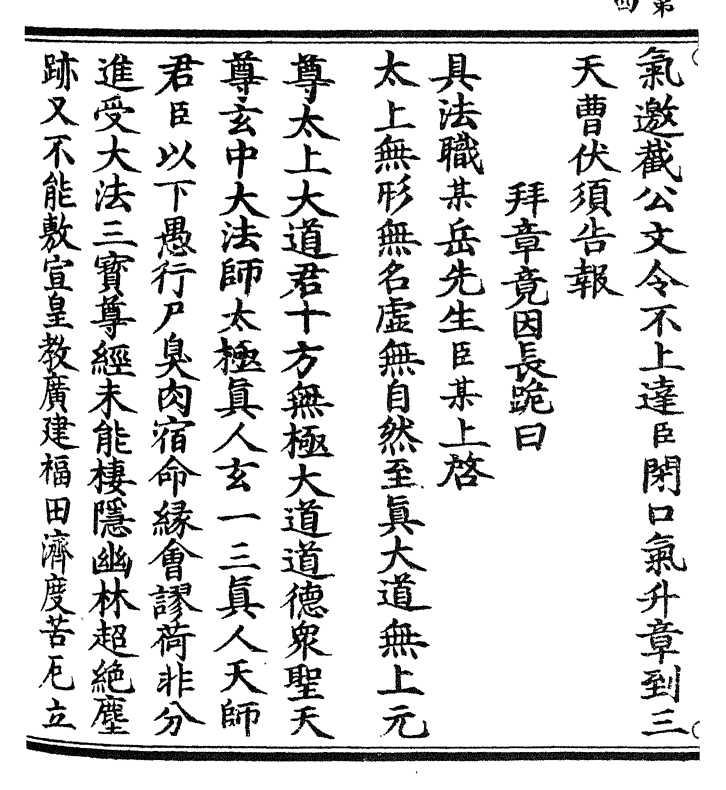 第四
氣邀截公文令不上達臣閉口氣升章到三
天曹伏須告報
拜章竟因長跪曰
具法職某岳先生臣某上啓
太上無形無名虛無自然至眞大道無上元
尊太上大道君十方無極大道道德衆聖天
尊玄中大法師太極眞人玄一三眞人天師
君臣以下愚行尸臭肉宿命緣會謬荷非分
進受大法三寶尊經未能棲隱幽林超絶塵
跡又不能敷宣皇教廣建福田濟度苦厄立